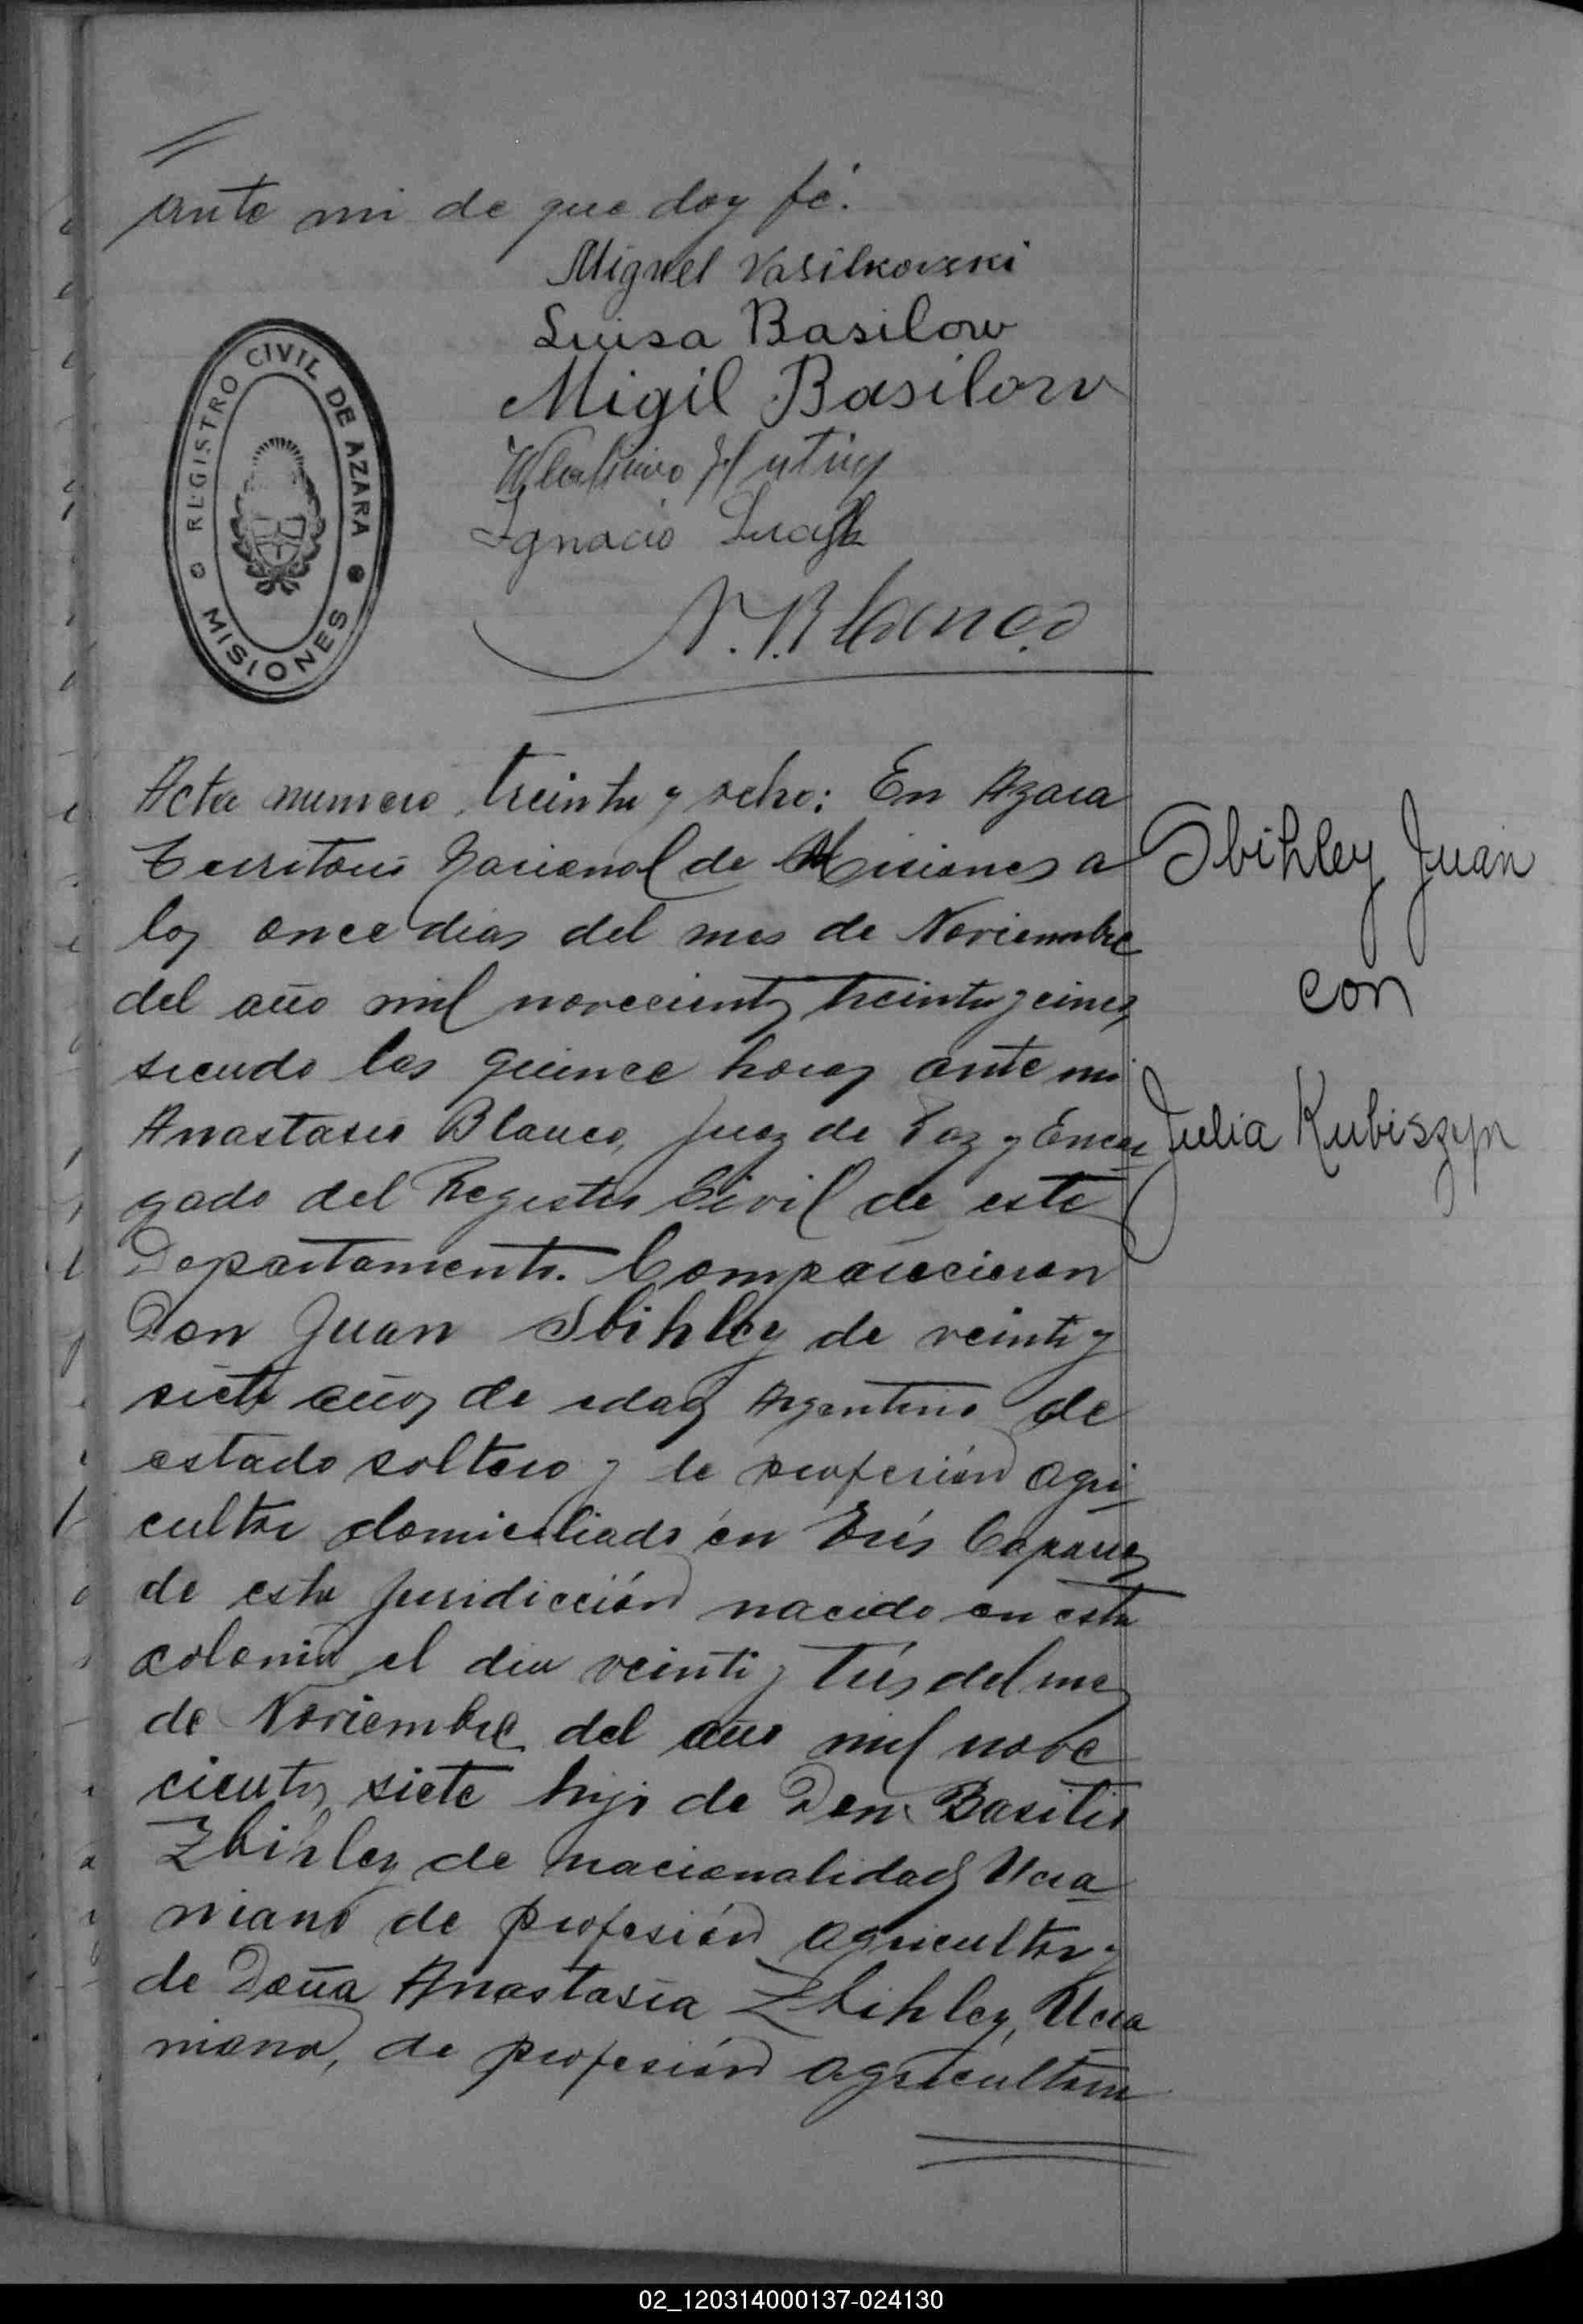 ante mi de que doy fé.
Miguel Vasilkovski
Luisa Basilow
Migil Basilow
Ignacio
A. Blanco
REGISTRO CIVIL DE AZARA
MISIONES
Acta numero treinta y ocho: En Azara
Territorio Nacional de Misiones a
los once dias del mes de Noviembre
del año mil novecientos treinta y cinco
siendo las quince horas ante mi
Anastasio Blanco, Juez de Paz y Encar
gado del Registro Civil de este
Departamento. Comparecieron
Don Juan Sbihley de veinti y
siete años de edad Argentino de
estado soltero y de profesión agri
cultor domiciliado en Trés Capones
de esta juridicción nacido en esta
colonia el dia veinti y trés del mes
de Noviembre del año mil nove
cientos siete hijo de Don Basilio
Zbihley de nacionalidad Ucra
niano de profesión agricultor y
de Doña Anastasia Zbihley, Ucra
niana, de profesión agricultora
Sbihley Juan
con
Julia Kubiszyn
02_120314000137-024130